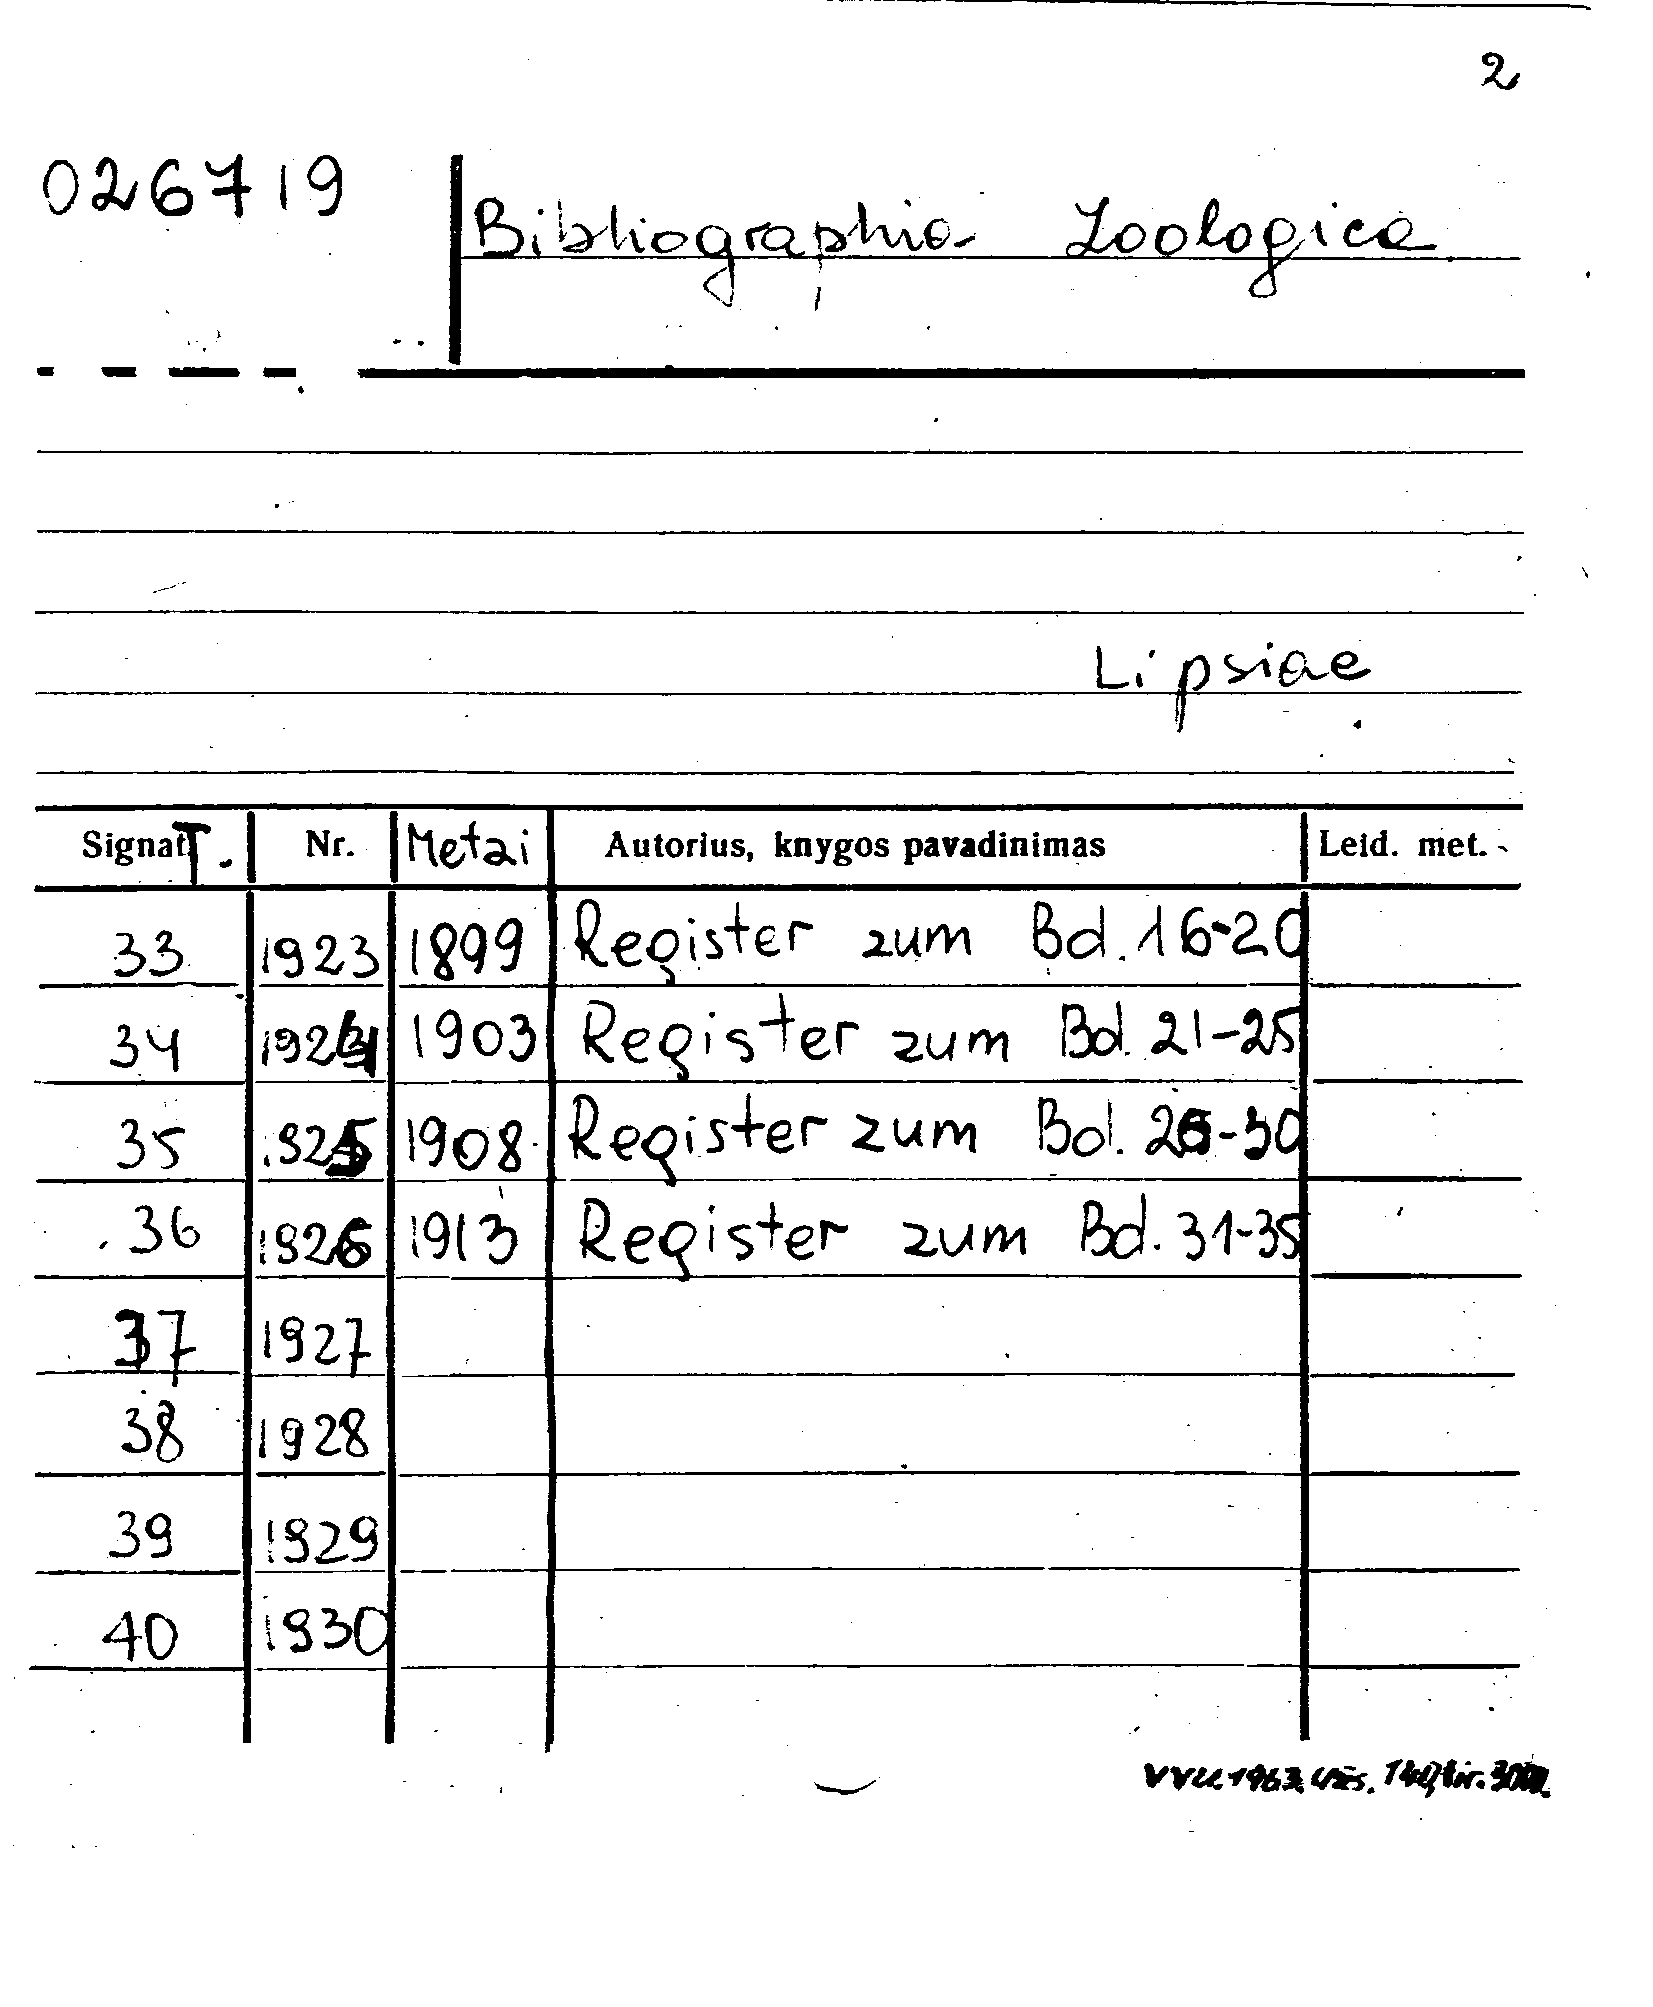 2
026719
Bibliographia Zoologica
Lipsiae
Signat T. Nr. Metai Autorius, knygos pavadinimas Leid. met.
33 1923 1899 Register zum Bd. 16-20
34 1924 1903 Register zum Bd. 21-25
35 1925 1908 Register zum Bd. 26-30
36 1926 1913 Register zum Bd. 31-35
37 1927
38 1928
39 1929
40 1930
VVU. 1963. Užs. tir.